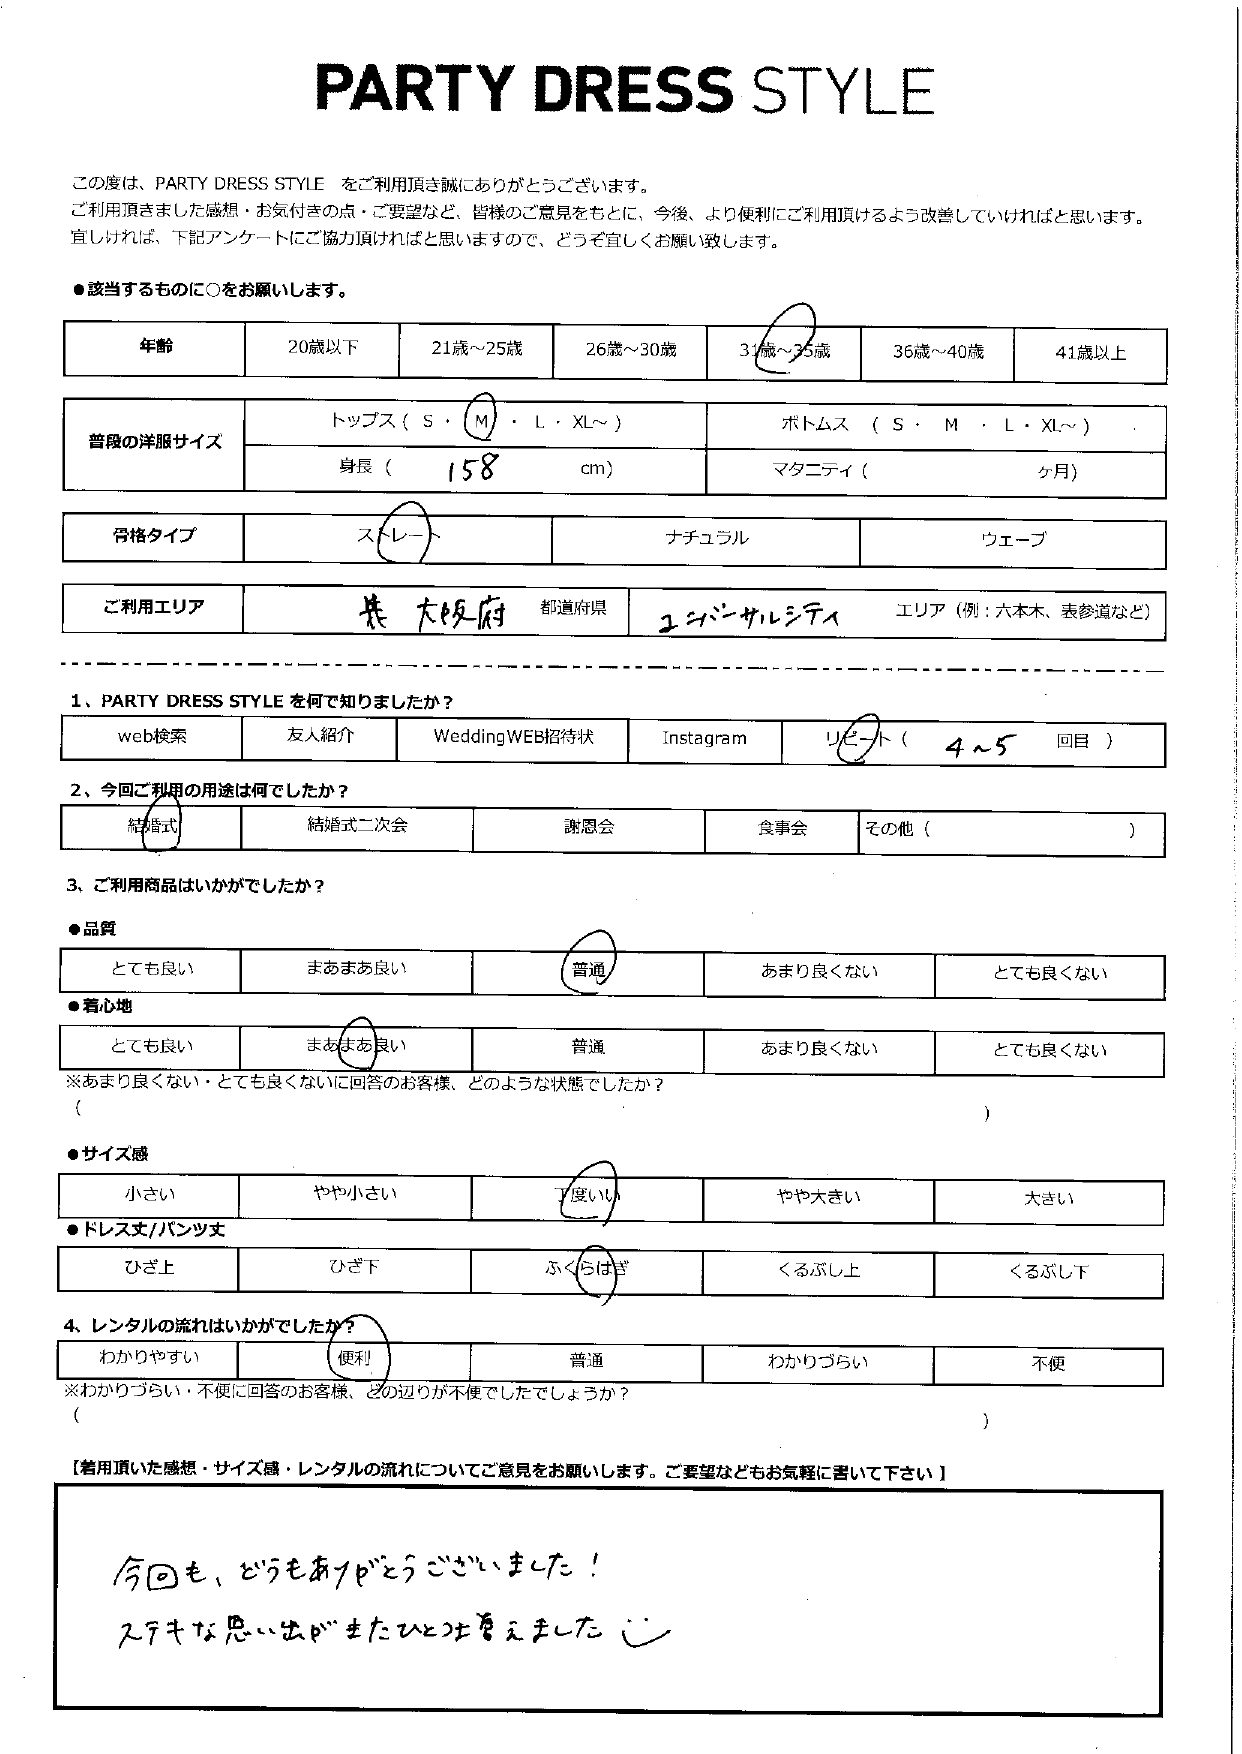 PARTY DRESS STYLE
この度は、PARTY DRESS STYLE をご利用頂き誠にありがとうございます。
ご利用頂きました感想・お気付きの点・ご要望など、皆様のご意見をもとに、今後、より便利にご利用頂けるよう改善していければと思います。
宜しければ、下記アンケートにご協力頂ければと思いますので、どうぞ宜しくお願い致します。
●該当するものに○をお願いします。
年齢 20歳以下 21歳～25歳 26歳～30歳 31歳～35歳 36歳～40歳 41歳以上
普段の洋服サイズ トップス ( S ・ M ・ L ・ XL～ ) ボトムス ( S ・ M ・ L ・ XL～ )
身長 ( 158 cm) マタニティ ( ヶ月)
骨格タイプ ストレート ナチュラル ウェーブ
ご利用エリア 大阪府 都道府県 ユニバーサルシティ エリア（例：六本木、表参道など）
1、PARTY DRESS STYLE を何で知りましたか？
web検索 友人紹介 WeddingWEB招待状 Instagram リピート ( 4～5 回目 )
2、今回ご利用の用途は何でしたか？
結婚式 結婚式二次会 謝恩会 食事会 その他 ( )
3、ご利用商品はいかがでしたか？
●品質
とても良い まあまあ良い 普通 あまり良くない とても良くない
●着心地
とても良い まあまあ良い 普通 あまり良くない とても良くない
※あまり良くない・とても良くないに回答のお客様、どのような状態でしたか？
( )
●サイズ感
小さい やや小さい 丁度いい やや大きい 大きい
●ドレス丈/パンツ丈
ひざ上 ひざ下 ふくらはぎ くるぶし上 くるぶし下
4、レンタルの流れはいかがでしたか？
わかりやすい 便利 普通 わかりづらい 不便
※わかりづらい・不便に回答のお客様、どの辺りが不便でしたでしょうか？
( )
【着用頂いた感想・サイズ感・レンタルの流れについてご意見をお願いします。ご要望などもお気軽に書いて下さい】
今回も、どうもありがとうございました！
ステキな思い出がまたひとつ増えました